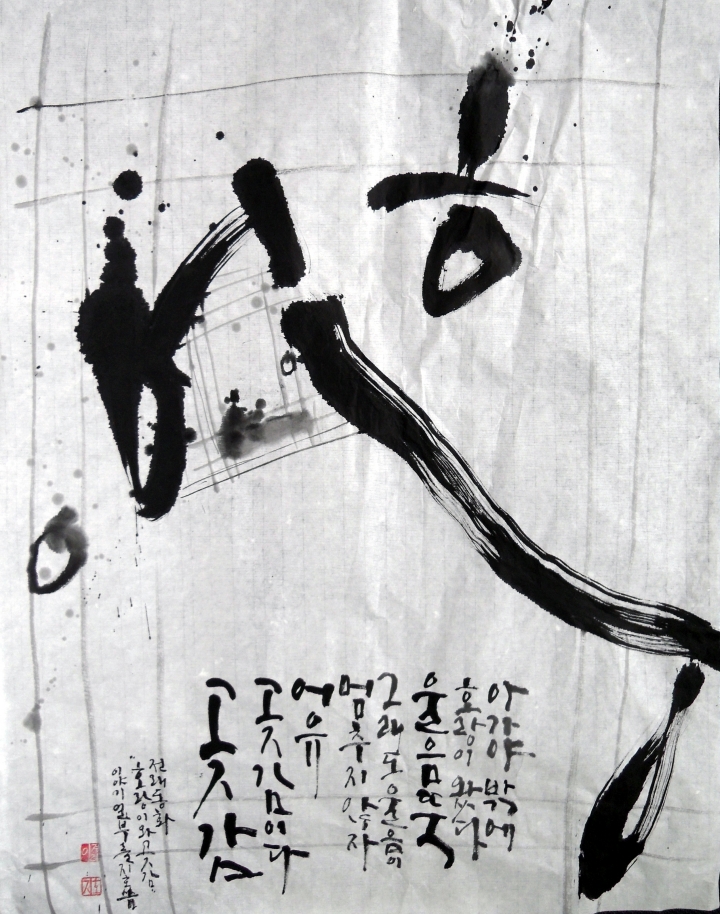 아가야 밖에
호랑이 왔다
울음 뚝
그래도 울음이
멈추지 않자
어유
곶감이다
곶감
전래동화
호랑이와 곶감
이야기 일부를